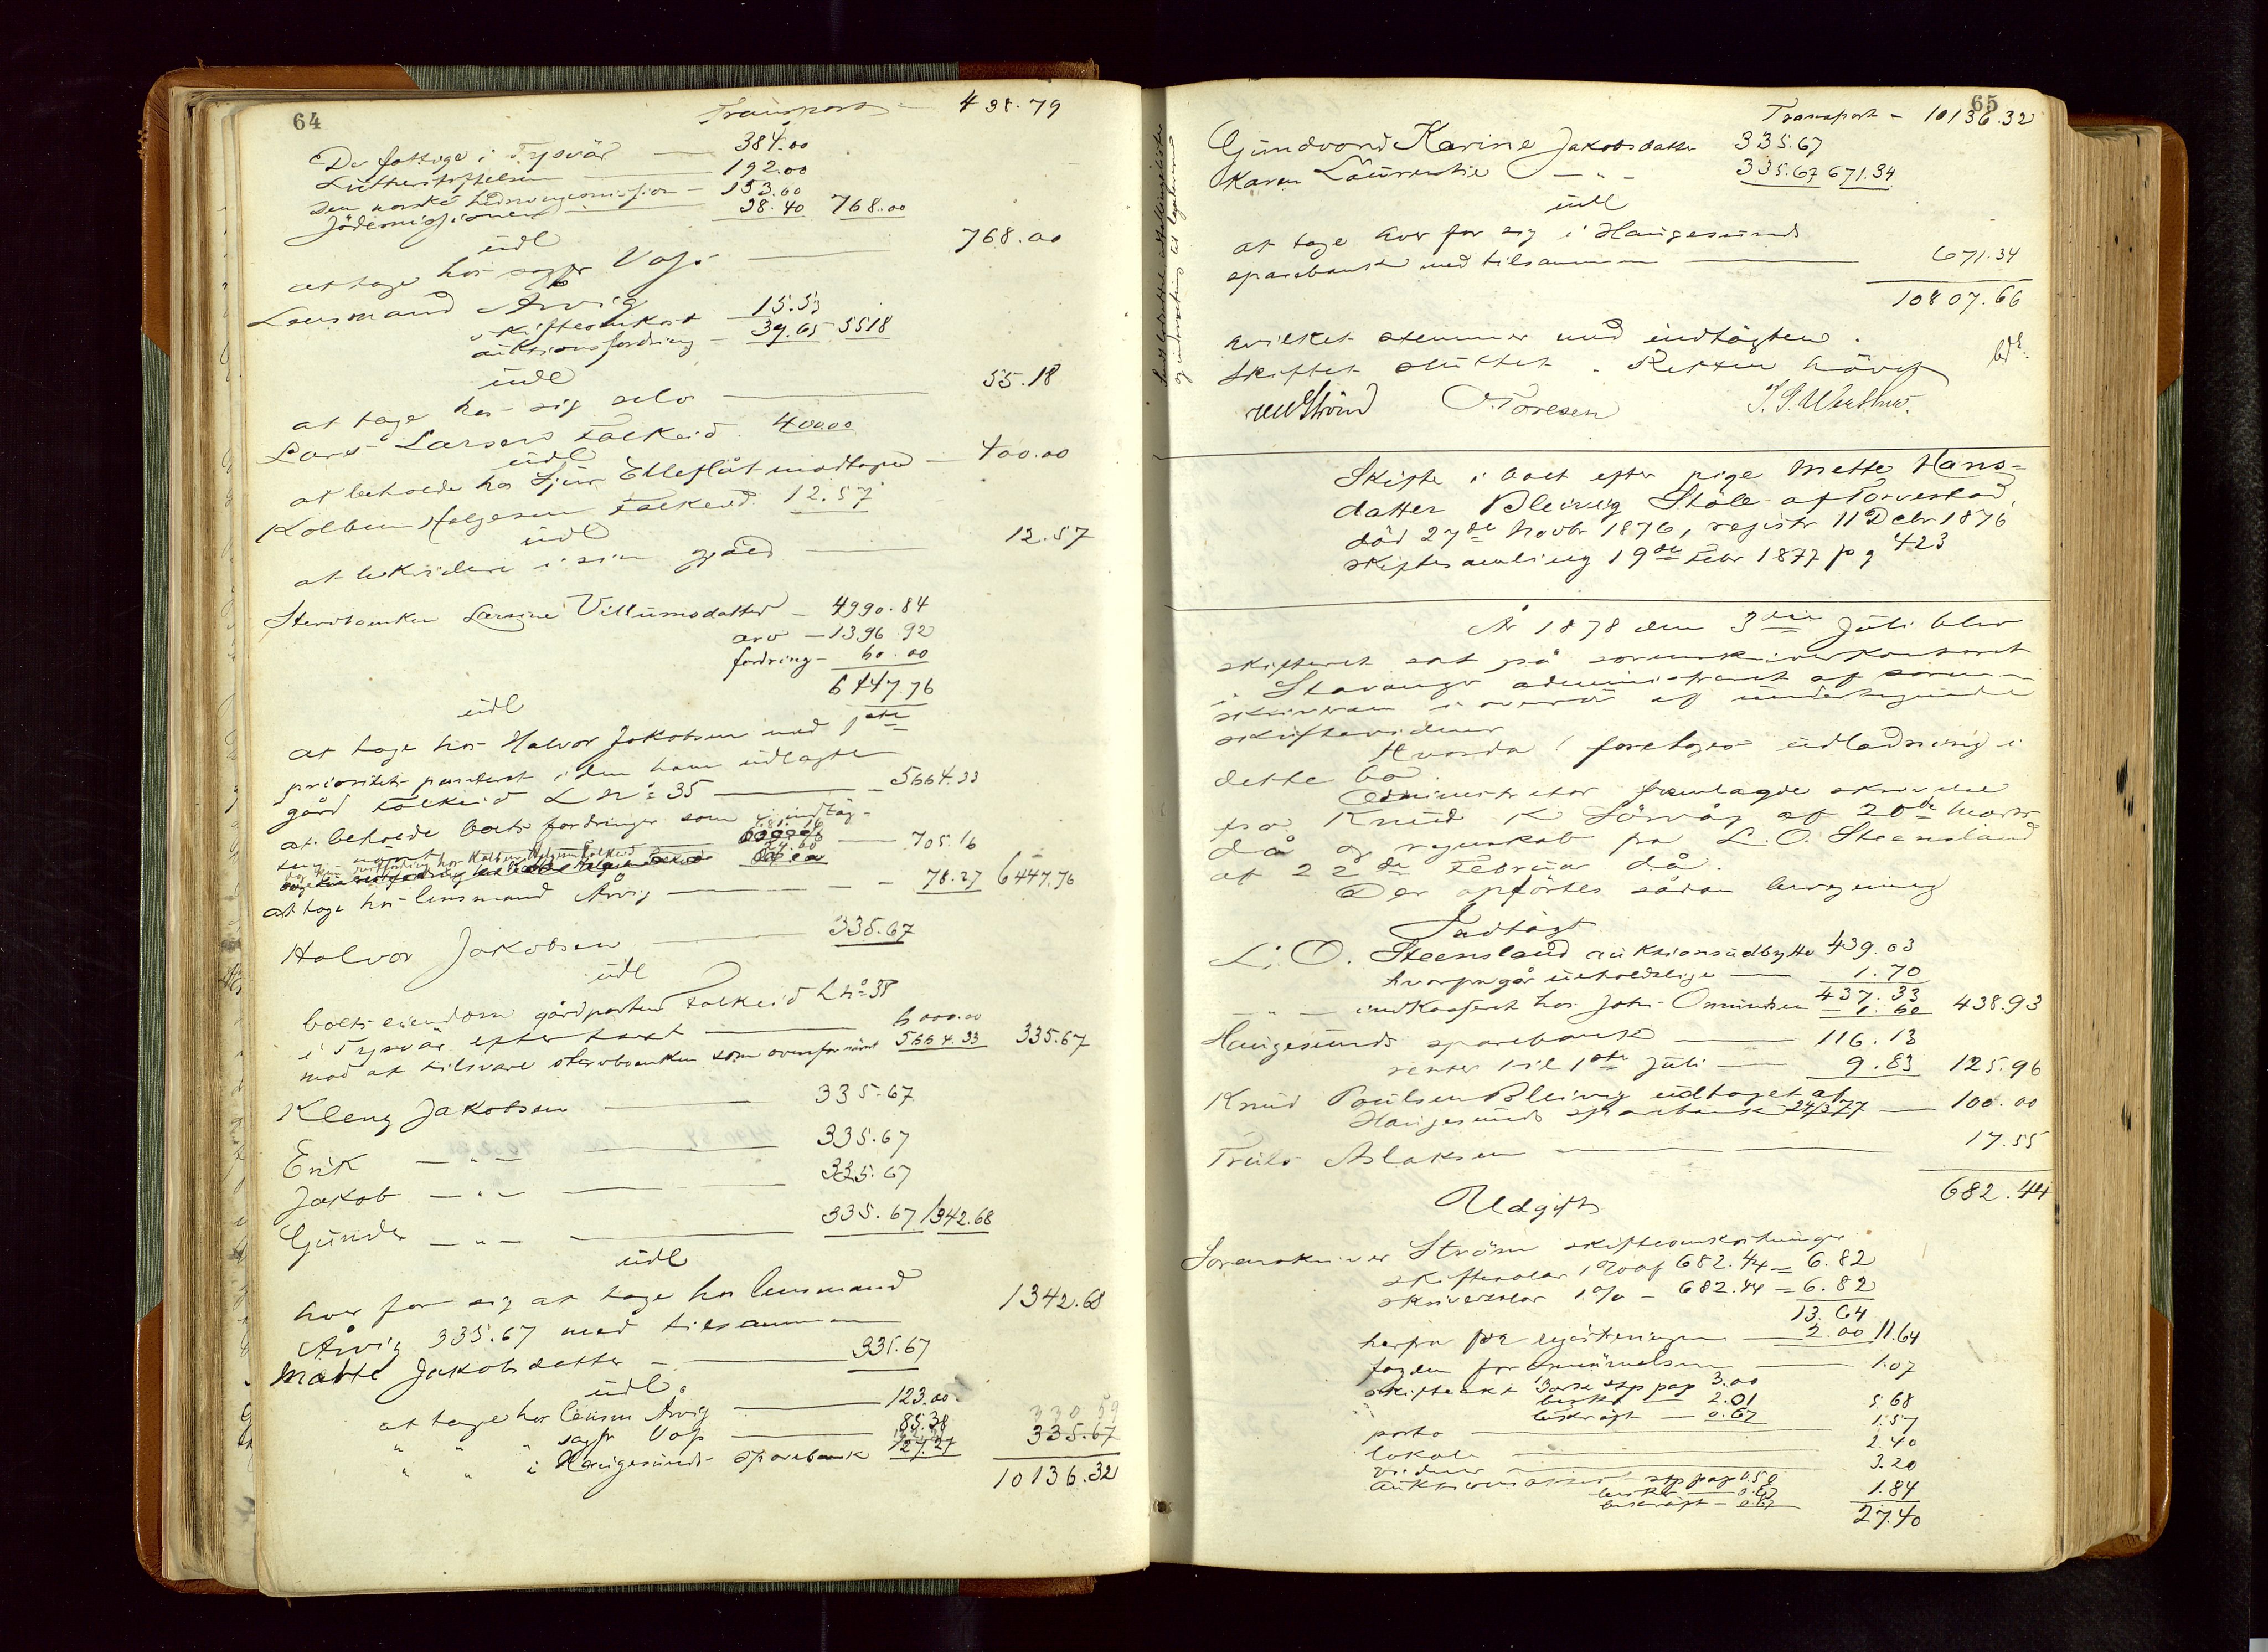 64
Transport - 438.79
De fattige i Tysvär — 384.00
Lutherstiftelsen — 192.00
Den norske hedningemission - 153.60
Jødemissionen — 38.40 768.00
üdl
at tage hos sagfr Voss — 768.00
Lensmand Årvig
skifteomkost 15.53
auktionsfordring - 39.65 55.18
üdl
at tage hos sig selv — 55.18
Lars Larsens Falkeid 400.00
üdl
at beholde hos Sjur Elleflåt modtaget — 400.00
Kolbein Helgesen Falkeid 12.57
üdl
at likvidere i sin gjæld — 12.57
Stervboenken Larsine Villumsdatter — 4990.84
arv — 1396.92
fordring — 60.00
6447.76
üdl
at tage hos Halvor Jakobsen med 1ste
prioritets panteret i den ham üdlagte
gård Falkeid L No 35 — 5664.33
at beholde boets fordringer som i indtæg-
705.16
at tage hos lensmand Årvig — 78.27 6447.76
Halvor Jakobsen — 335.67
üdl
boets eiendom gårdparten Falkeid L No 35
i Tysvär efter taxt — 6000.00
mod at tilsvare stervboenken som ovenfor nävnt 5664.33 335.67
Kleng Jakobsen — 335.67
Erik — " — 335.67
Jakob — " — 335.67
Günder — " — 335.67 1342.68
üdl
hver for sig at tage hos lensmand
Årvig 335.67 med tilsammen 1342.68
Mette Jakobsdatter — 335.67
üdl
at tage hos lensm Årvig — 123.00
" " " sagfr Voss 85.38
" " i Haugesunds sparebank 127.27 335.67
10136.32
65
Transport - 10136.32
Gündvord Karine Jakobsdatter 335.67
Karen Laurentse — " — 335.67 671.34
üdl
at tage hver for sig i Haugesunds
sparebank med tilsammen — 671.34
10807.66
hvilket stemmer med indtægten.
Skiftet slüttet. Retten hævet
O Toresen
Skifte i boet efter pige Mette Hans-
datter Bleivig Støle af Torvestad,
død 27de Novbr 1876, registr 11 Debr 1876
skiftesamling 19de Febr 1877 pg 423
År 1878 den 3die Jüli blev
skifteret sat på sorenskriverkontoret
i Stavanger administreret af soren-
skriveren i overvär af undertegnede
skiftevidner
Hvorda! foretoges üdlodning i
dette bo.
Administrator fremlagde skrivelse
fra Knüd K Sørvåg af 20de Marts
d.å og regnskab fra L. O. Steensland
af 22de Februar d.å.
Der opførtes sådan beregning
Indtägt
L. O. Steensland auktionsüdbytte 439.03
hvorpa går üerholdelige — 1.70
437.33
— " — indkasseret hos John Omündsen — 1.60 438.93
Haugesunds sparebank — 116.13
renter til 1ste Jüli — 9.83 125.96
Knüd Poülsen Bleivig üdtaget af
Haugesunds sparebank 24/3 77 — 100.00
Trüls Aslaksen — 17.55
682.44
Udgift
Sorenskriver Strøm skifteomkostninger
skiftesalær 1% af 682.44 = 6.82
skriversalær 1% — 682.44 = 6.82
13.64
herfra for registreringen — 2.00 11.64
fogden for — 1.07
skifteakt 3 ark stp pap 3.00
beskr 2.01
bekräft — 0.67 5.68
porto — 1.57
lokale — 2.40
vidner — 3.20
auktions stp pap 0.50
beskr — 0.67
bekräft — 0.67 1.84
27.40